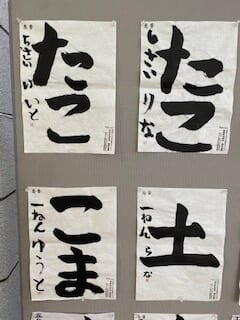 たこ
ちさい ゆいと
たこ
ちさい りな
こま
一ねん ゆうと
土
一ねん らな